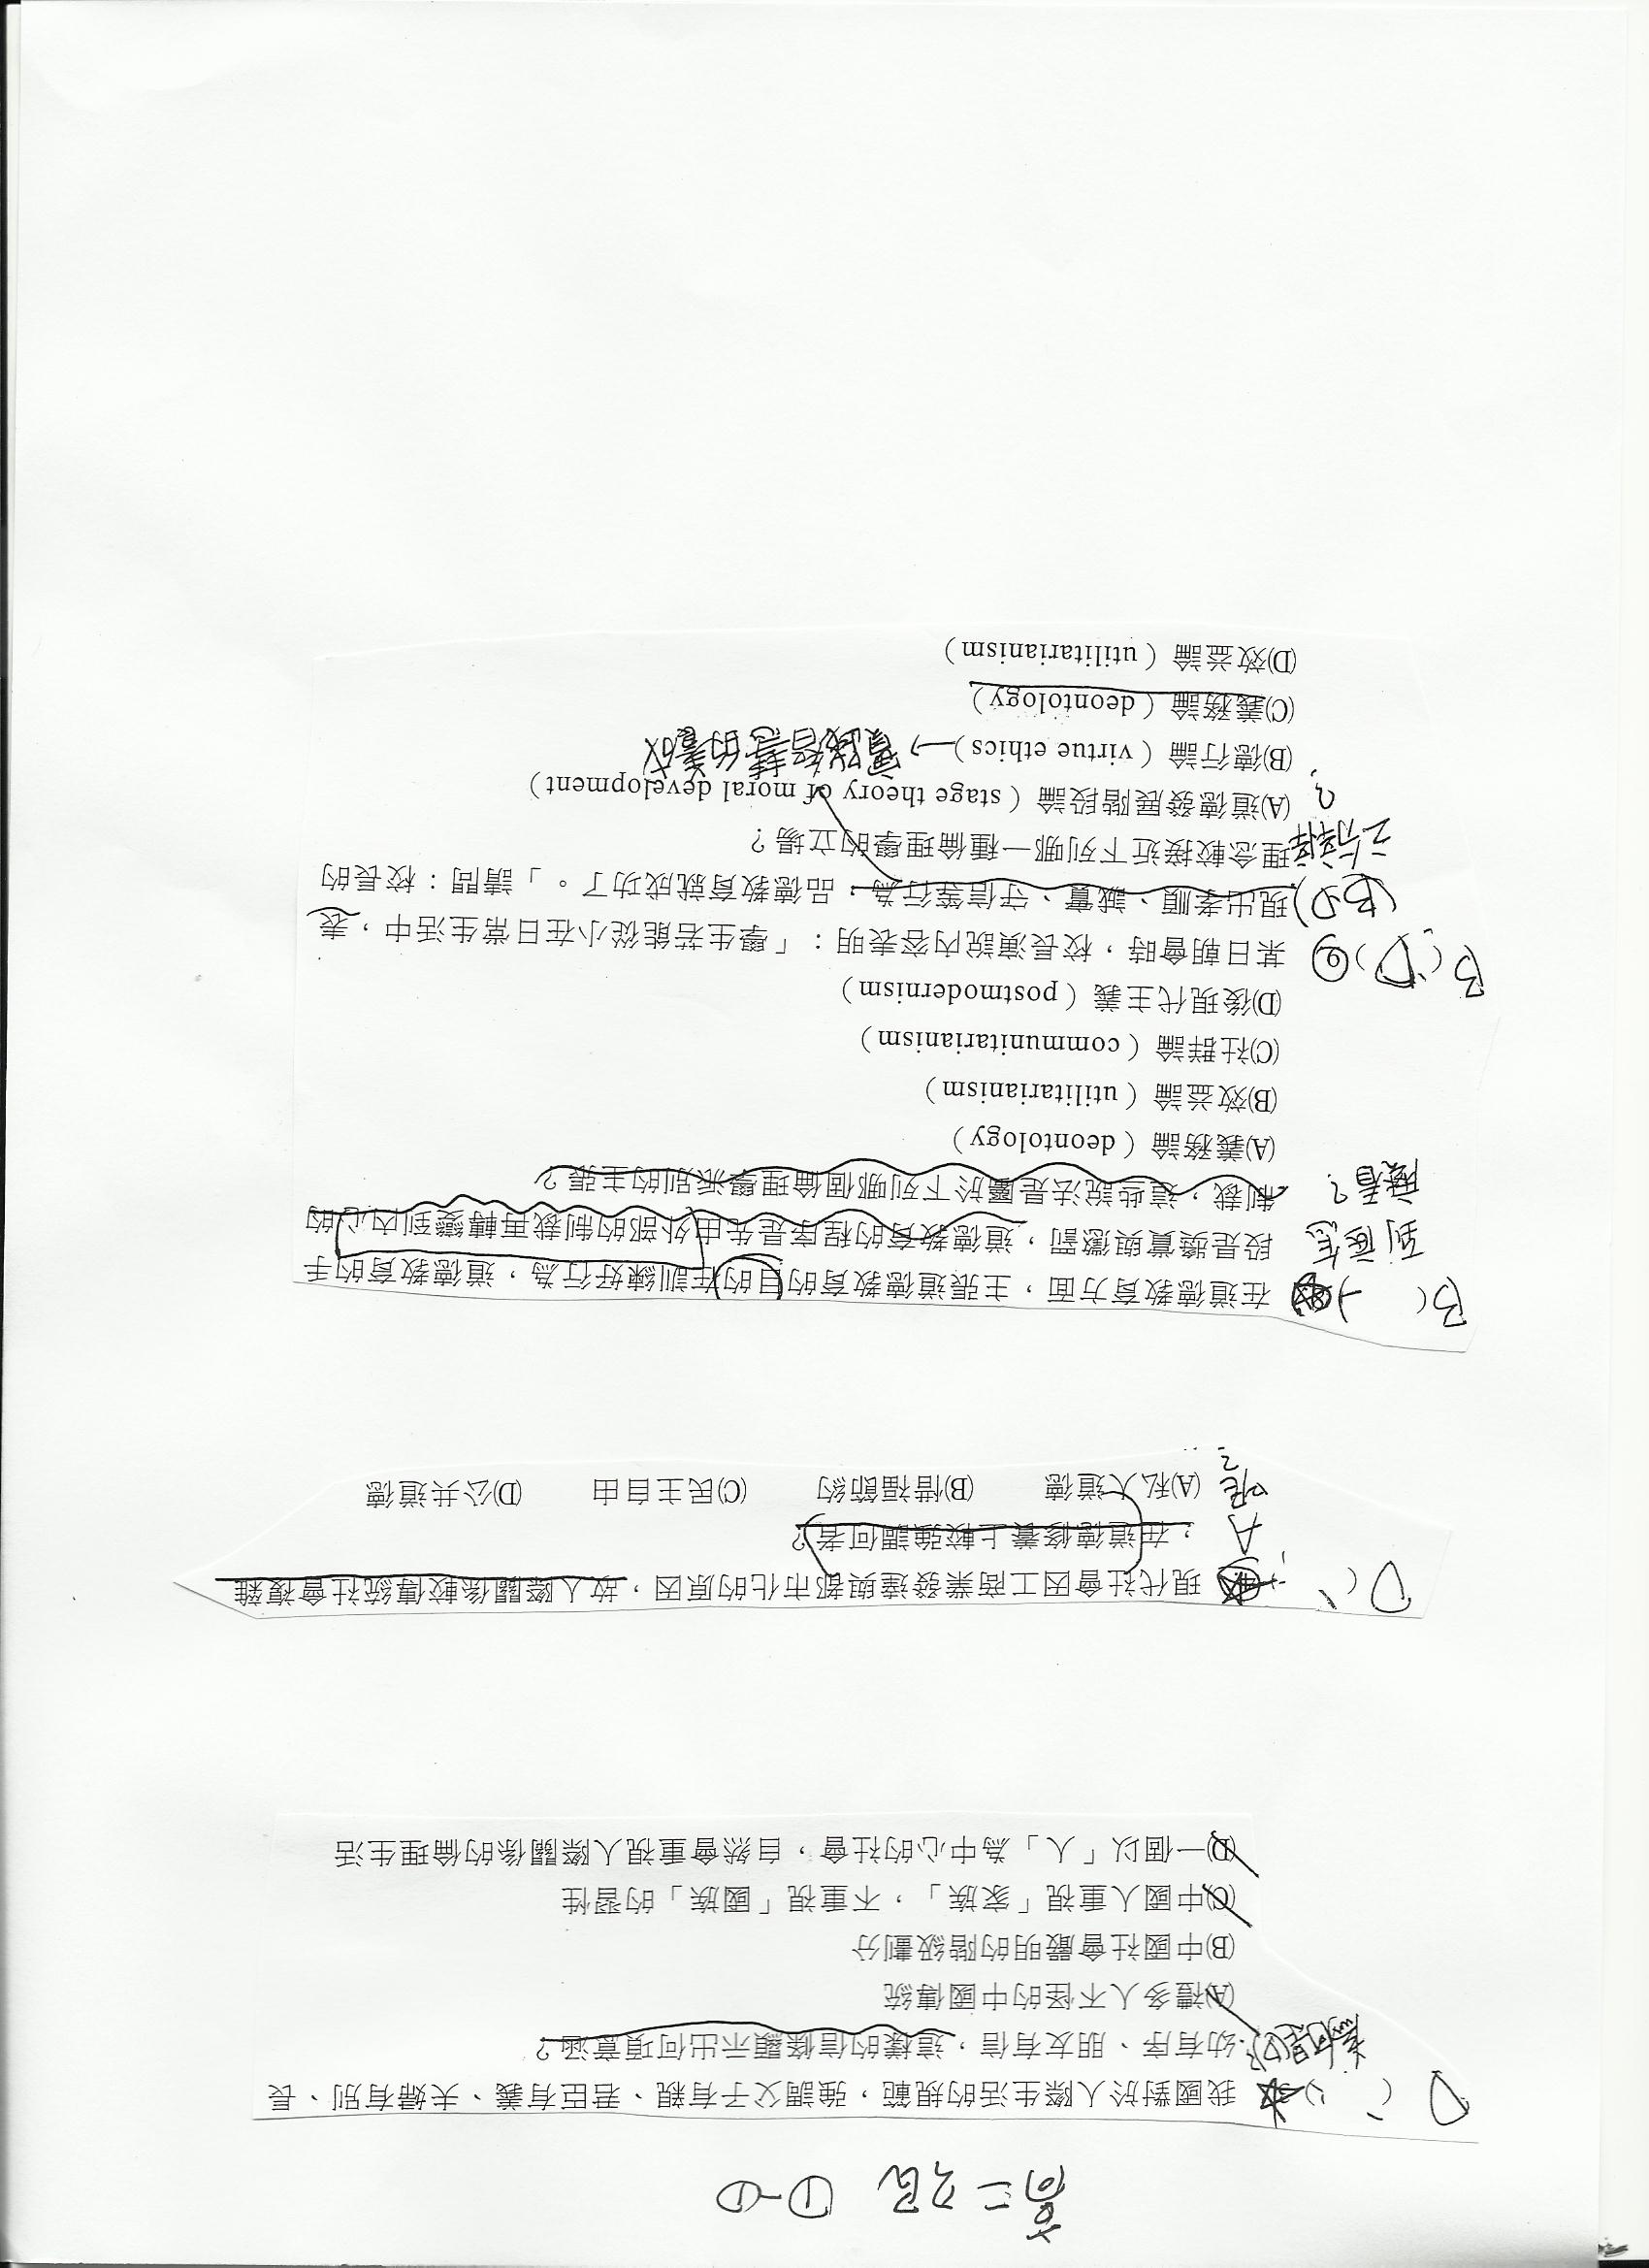 高二 ①-①
D( ) 我國對於人際生活的規範，強調父子有親、君臣有義、夫婦有別、長
幼有序、朋友有信，這樣的信條顯示出何項意涵？
(A)禮多人不怪的中國傳統
(B)中國社會嚴明的階級劃分
(C)中國人重視「家族」，不重視「國族」的習性
(D)一個以「人」為中心的社會，自然會重視人際關係的倫理生活
D( ) 現代社會因工商業發達與都市化的原因，故人際關係較傳統社會複雜
，在道德修養上較強調何者？
A呢？
(A)私人道德 (B)惜福節約 (C)民主自由 (D)公共道德
B( ) 在道德教育方面，主張道德教育的目的在訓練好行為，道德教育的手
段是獎賞與懲罰，道德教育的程序是先由外部的制裁再轉變到內心的
制裁，這些說法是屬於下列哪個倫理學派別的主張？
到底怎
麼看？
(A)義務論（deontology）
(B)效益論（utilitarianism）
(C)社群論（communitarianism）
(D)後現代主義（postmodernism）
B(D) 某日朝會時，校長演說內容表明：「學生若能從小在日常生活中，表
(BD) 現出孝順、誠實、守信等行為，品德教育就成功了。」請問：校長的
理念較接近下列哪一種倫理學的立場？
(A)道德發展階段論（stage theory of moral development）
(B)德行論（virtue ethics）→實踐智慧的養成
(C)義務論（deontology）
(D)效益論（utilitarianism）